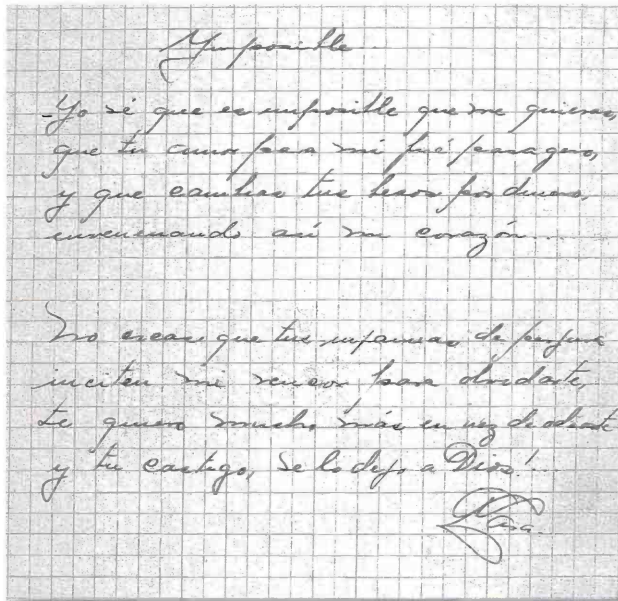 Ymposible
-Yo sé que es imposible que me quieras,
que tu amor para mi fué pasagero,
y que cambias tus besos por dinero,
envenenando así mi corazón...
No creas que tus infamias de perjura
inciten mi rencor para olvidarte,
te quiero mucho más en vez de odiarte
y tu castigo, se lo dejo a Dios!...
Lara.